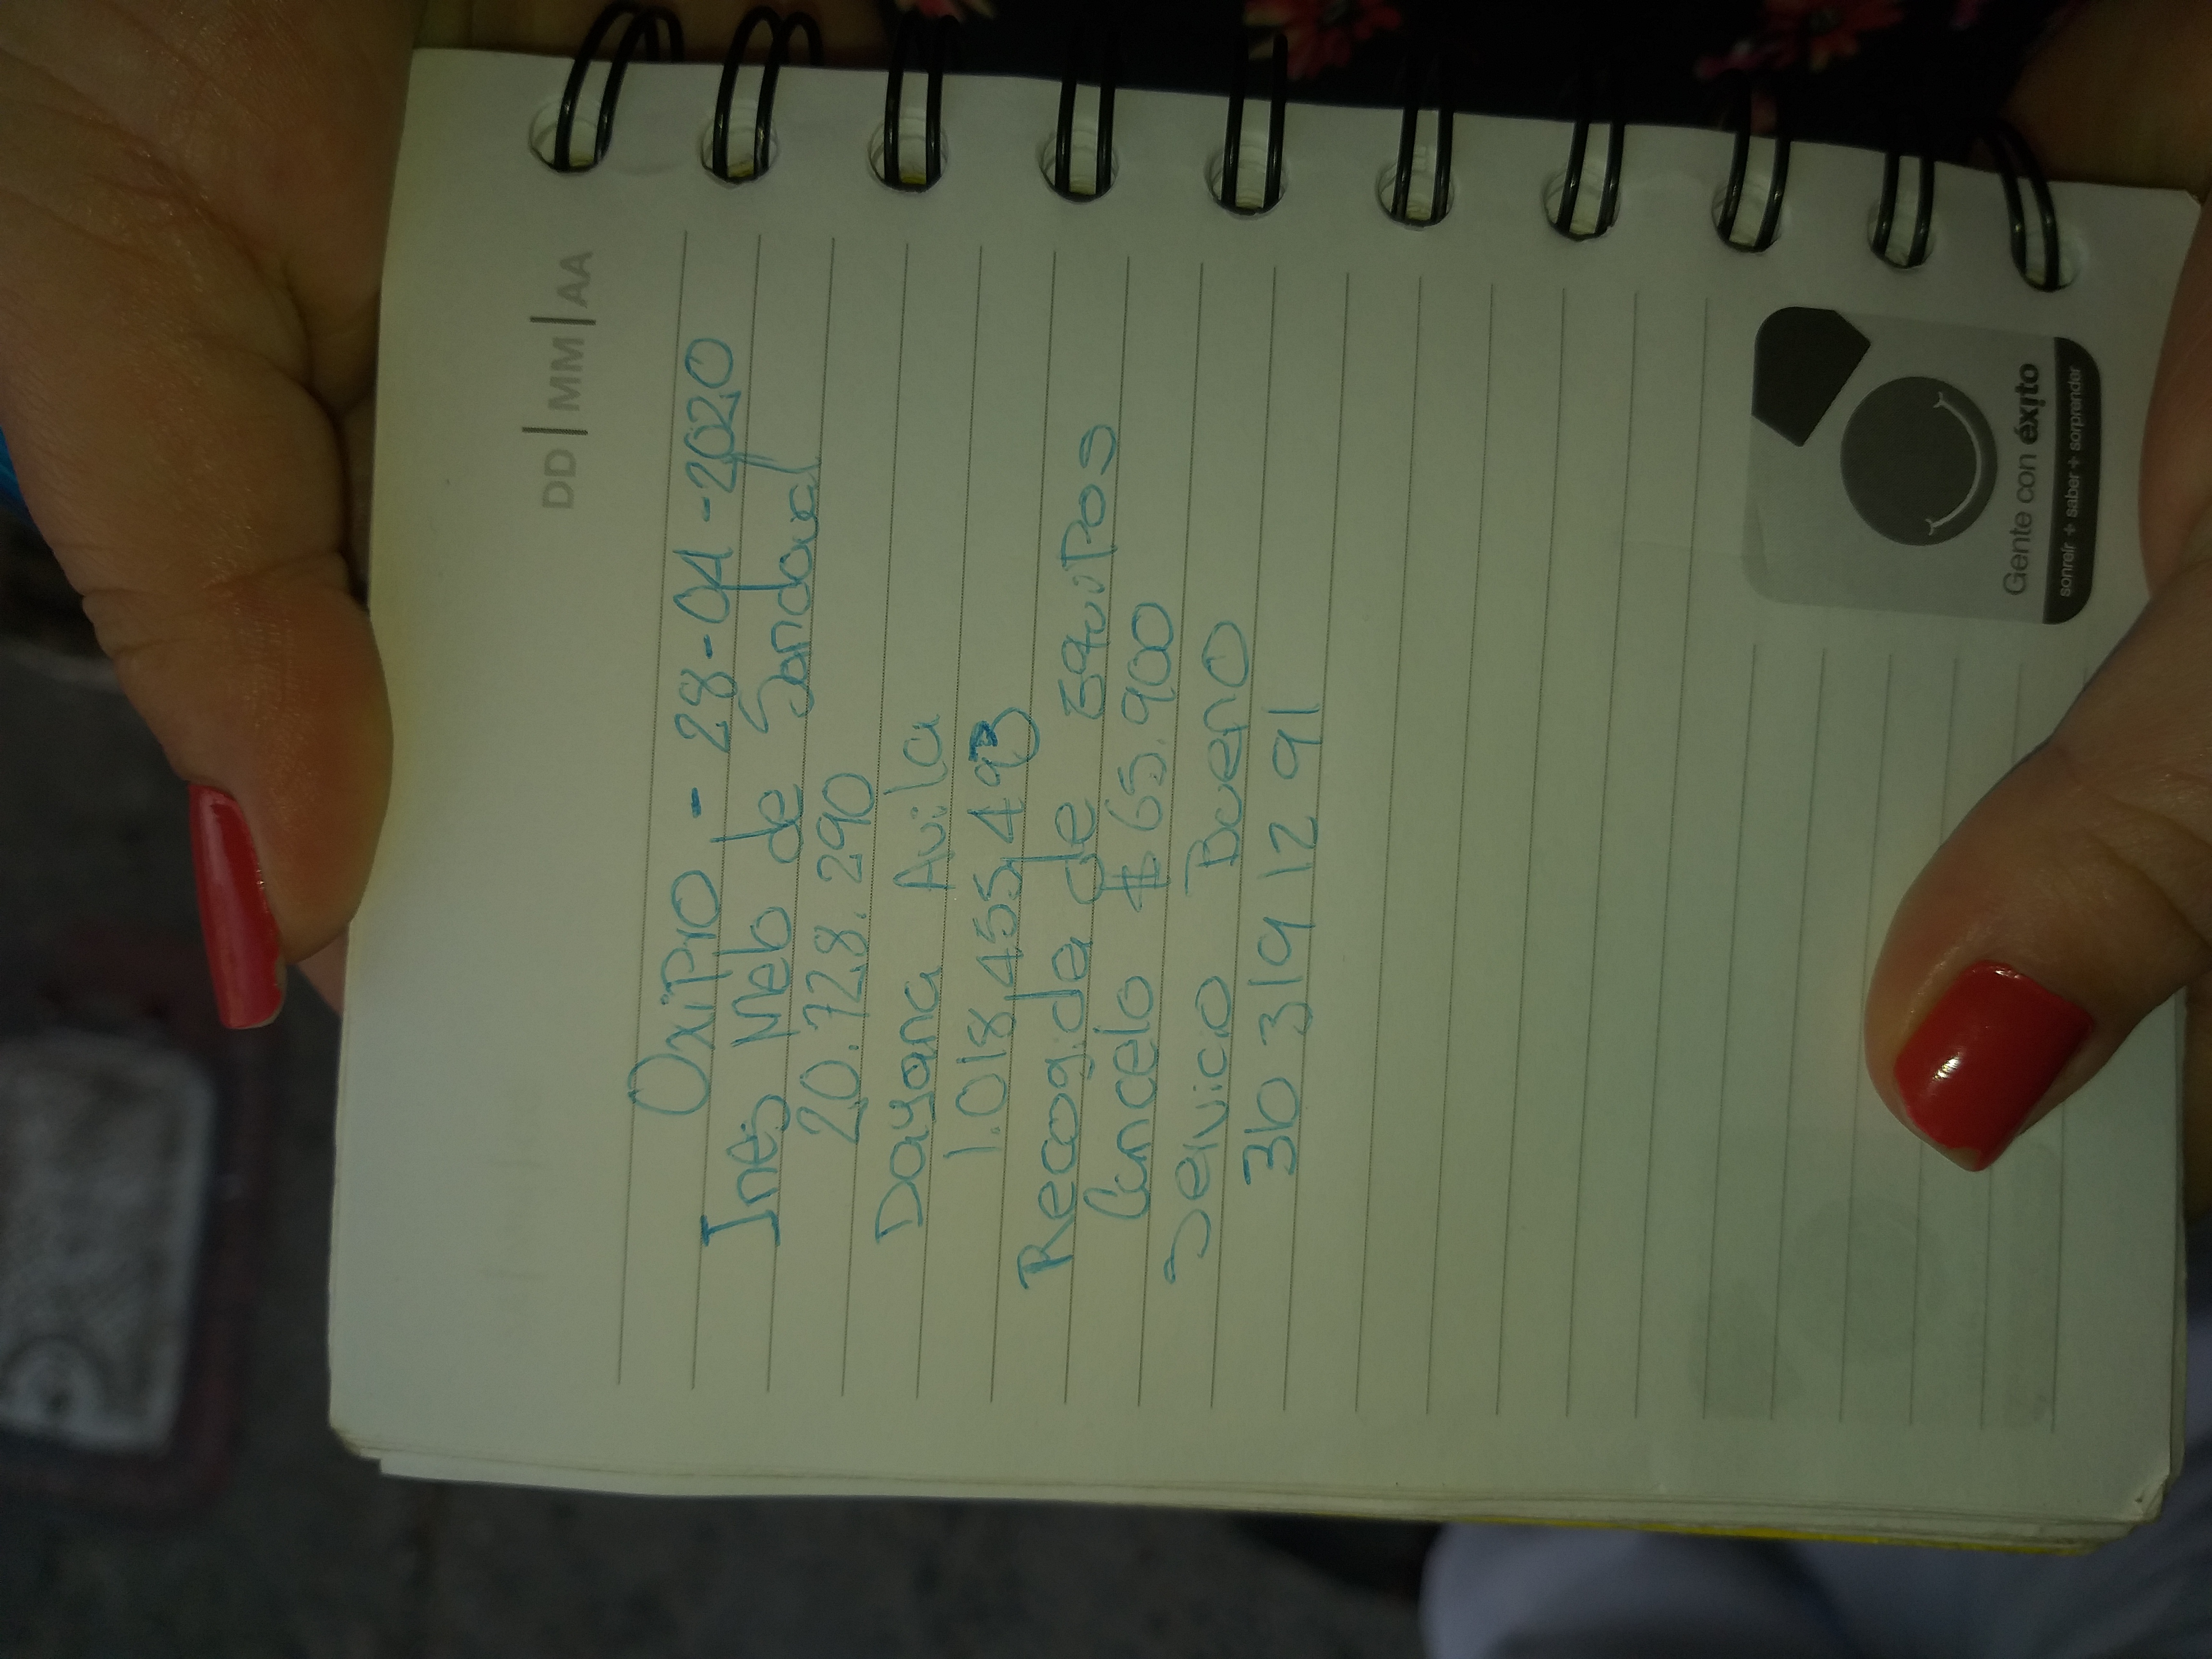 DD | MM | AA
OxiPro - 28-04-2020
Ines Melo de Sandoval
20.728.290
Dayana Avila
1.018.455.493
Recogida de Equipos
Cancelo $65.900
Servicio Bueno
310 319 12 91
Gente con éxito
sonreír + saber + sorprender